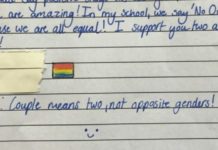 are amazing! In my school, we say 'No O
se we are all equal! I support you two a
!
Couple means two, not opposite genders!